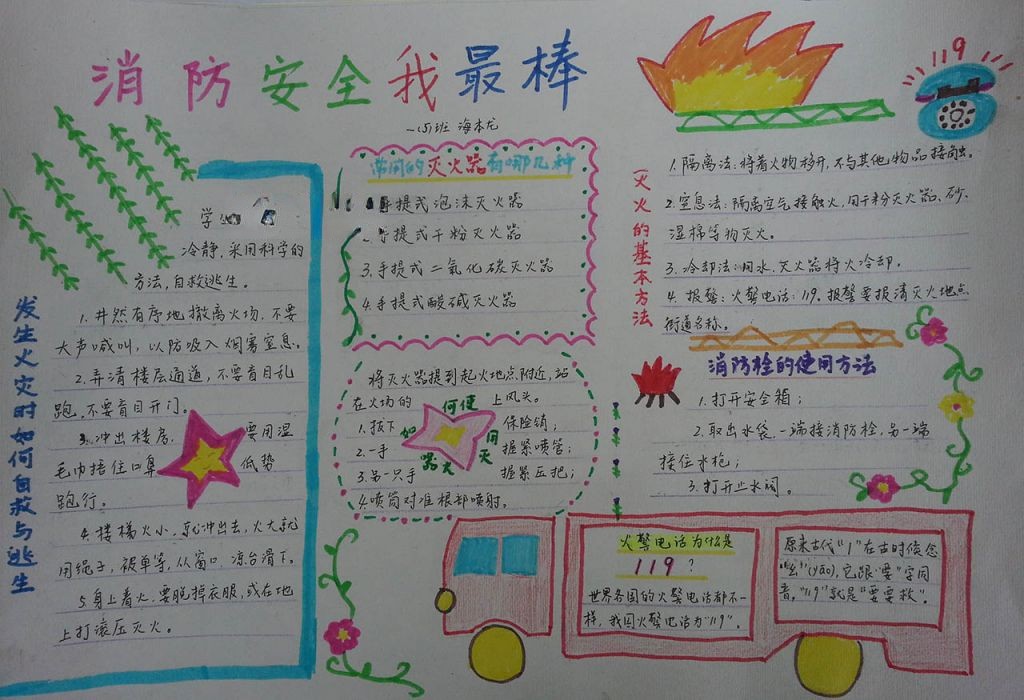 消防安全我最棒
一(5)班 海本龙
119
发生火灾时如何自救与逃生
学
冷静,采用科学的
方法,自救逃生。
1.井然有序地撤离火场,不要
大声喊叫,以防吸入烟雾窒息。
2.弄清楼层通道,不要盲目乱
跑,不要盲目开门。
3.冲出楼房,要用湿
毛巾捂住口鼻 低势
跑行。
4.楼梯火小,就冲出去,火大就
用绳子,被单等,从窗口 凉台滑下。
5.身上着火,要脱掉衣服,或在地
上打滚压灭火。
常间的灭火器有哪几种
手提式泡沫灭火器
2.手提式干粉灭火器
3.手提式二氧化碳灭火器
4.手提式酸碱灭火器
如何使用灭火器
将灭火器提到起火地点附近,站
在火场的 上风头。
1.拔下 保险销;
2.一手 握紧喷管;
3.另一只手 握紧压把;
4.喷筒对准根部喷射。
灭火的基本方法
1.隔离法:将着火物移开,不与其他物品接触。
2.窒息法:隔离空气接触火,用干粉灭火器、砂、
湿棉等物灭火。
3.冷却法:用水、灭火器将火冷却。
4.报警:火警电话:119。报警要报清灭火地点
街道名称。
消防栓的使用方法
1.打开安全箱;
2.取出水袋,一端接消防栓,另一端
接住水枪;
3.打开止水阀。
火警电话为什是
119?
世界各国的火警电话都不一
样,我国火警电话为"119"。
原来古代"1"在古时候念
"幺"(yāo),它跟"要"字同
音。"119"就是"要要救"。